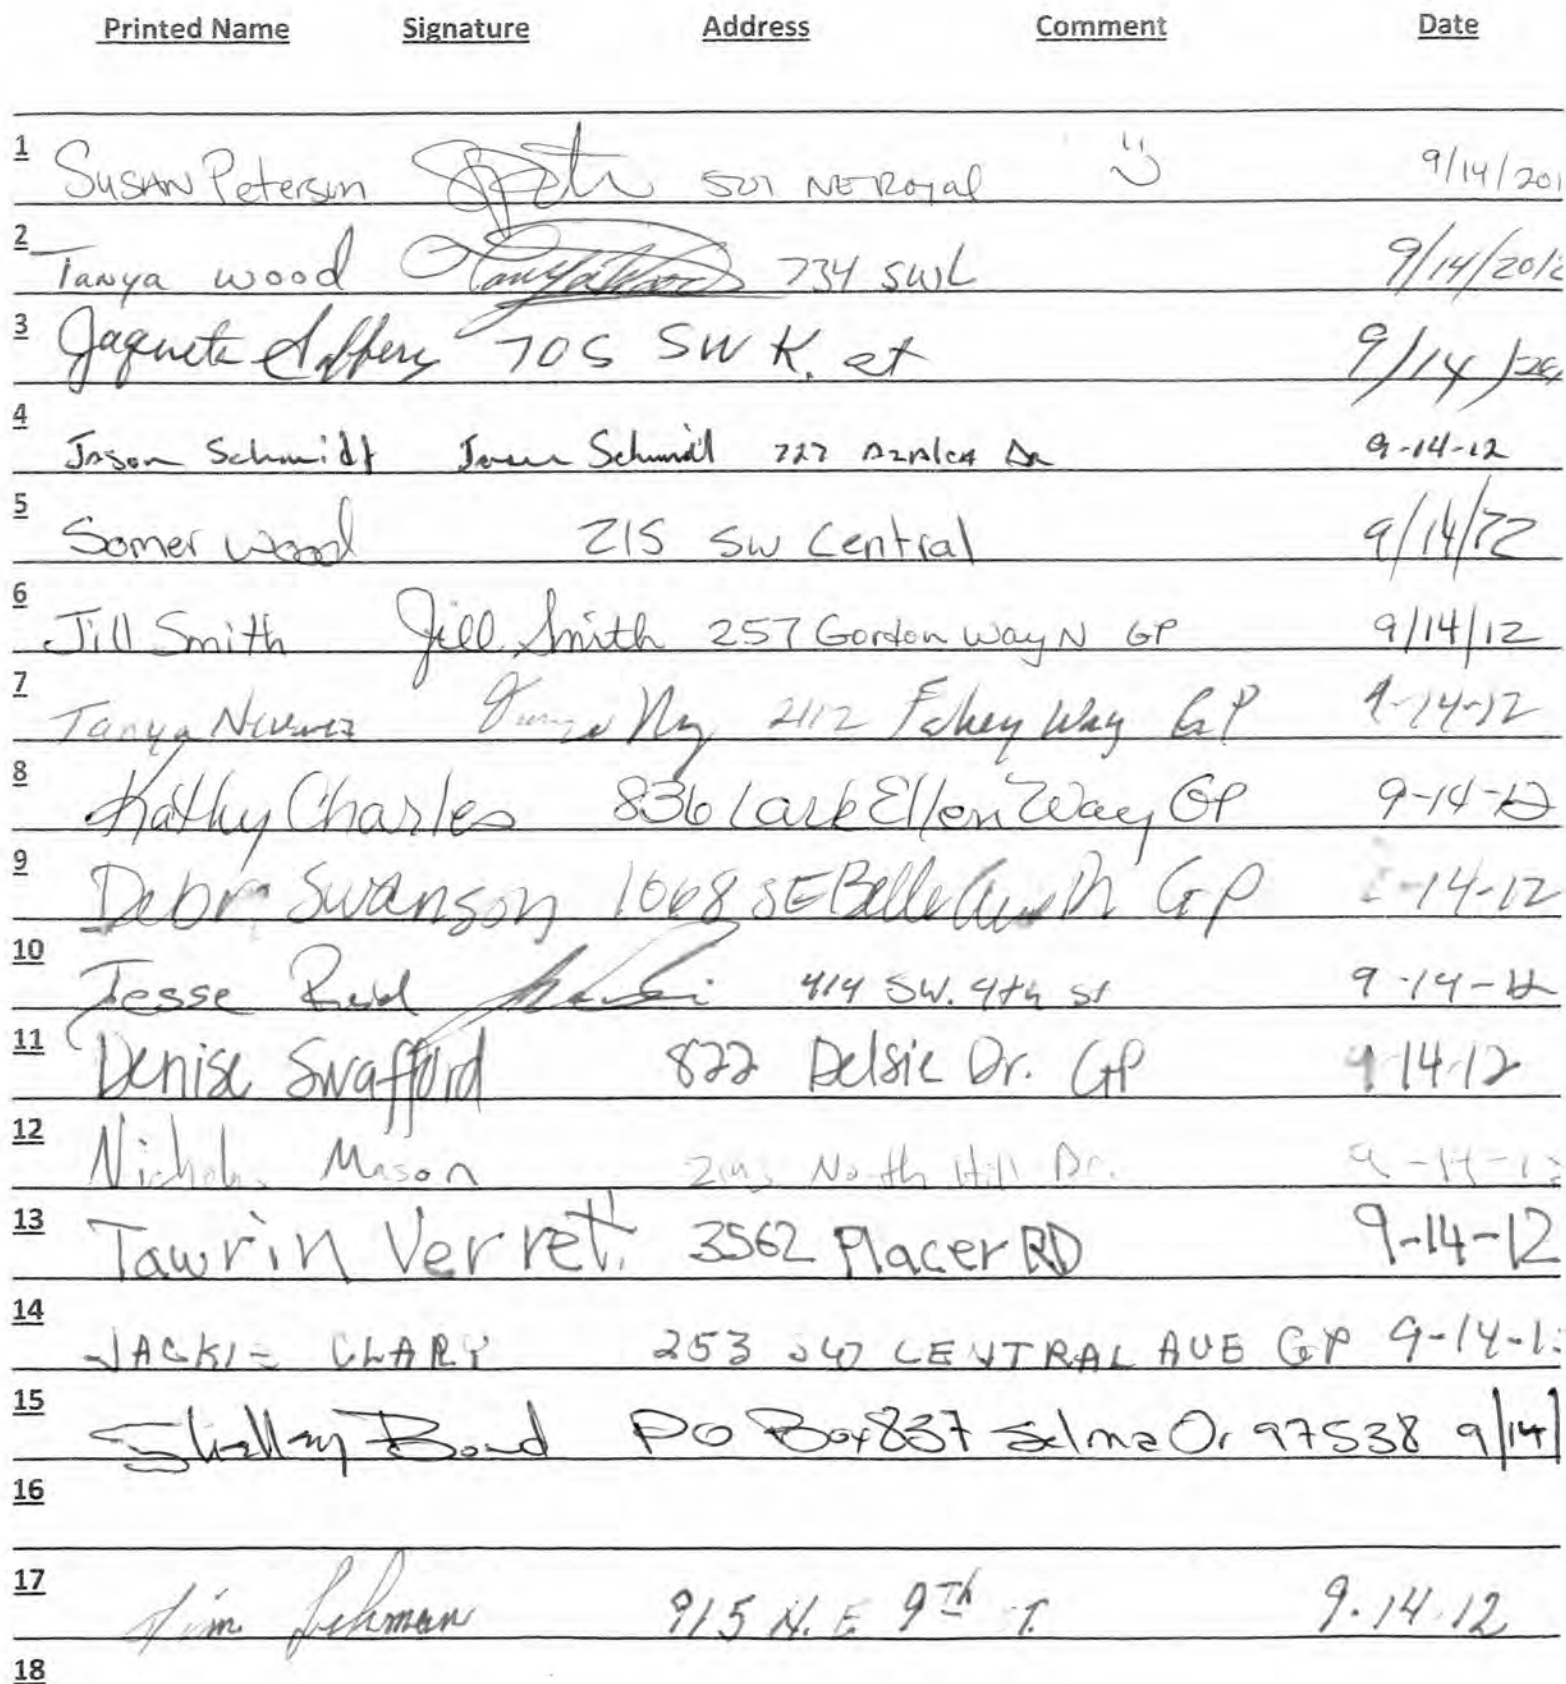 Printed Name Signature Address Comment Date
1 Susan Peterson 501 NE Royal 9/14/201
2 Tanya wood Tanya Wood 734 SWL 9/14/2012
3 705 SW K. st 9/14/
4 Jason Schmidt Jason Schmidt 727 Azalea Dr 9-14-12
5 Somer wood 215 SW Central 9/14/12
6 Jill Smith Jill Smith 257 Gordon Way N GP 9/14/12
7 Tanya 2112 Fahey Way GP 9-14-12
8 Kathy Charles 836 Lark Ellen Way GP 9-14-12
9 Debra Swanson 1068 SE Belle GP -14-12
10 Jesse 414 SW. 4th st 9-14-12
11 Denise Swafford 822 Delsie Dr. GP 9-14-12
12 Nicholas Mason North Hill Dr. 9-14-12
13 Tawrin Verret. 3562 Placer RD 9-14-12
14 JACKIE CLARY 253 SW CENTRAL AVE GP 9-14-1
15 PO Box 837 Selma Or 97538 9/14/
16
17 Jim Lehman 915 N.E 9Th 9.14.12
18